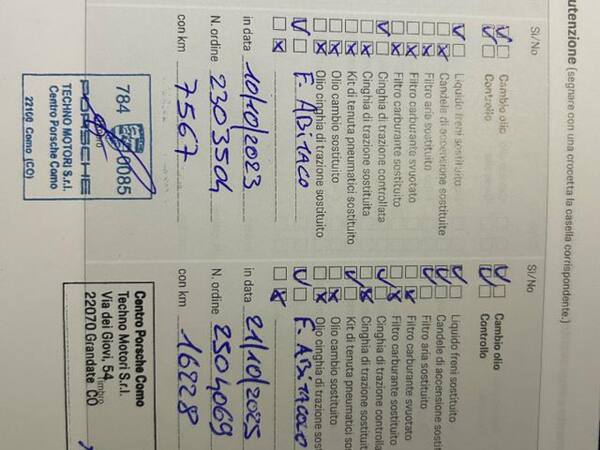 utenzione (segnare con una crocetta la casella corrispondente.)
Sì/No
Cambio olio
Controllo
Liquido freni sostituito
Candele di accensione sostituite
Filtro aria sostituito
Filtro carburante svuotato
Filtro carburante sostituito
Cinghia di trazione controllata
Cinghia di trazione sostituita
Kit di tenuta pneumatici sostituito
Olio cambio sostituito
Olio cinghia di trazione sostituito
F. ABITACO
in data 10/10/2023
N. ordine 2303504
con km 7567
784
0085
PORSCHE
TECHNO MOTORI S.r.l.
Centro Porsche Como
22100 Como (CO)
Sì/No
Cambio olio
Controllo
Liquido freni sostituito
Candele di accensione sostit
Filtro aria sostituito
Filtro carburante svuotato
Filtro carburante sostituito
Cinghia di trazione controlla
Cinghia di trazione sostitui
Kit di tenuta pneumatici s
Olio cambio sostituito
Olio cinghia di trazione sos
F. ABITACOLO
in data 21/10/2025
N. ordine 2504069
con km 16228
Centro Porsche Como
Techno Motori S.r.l.
Via dei Giovi, 54
Timbro
22070 Grandate CO